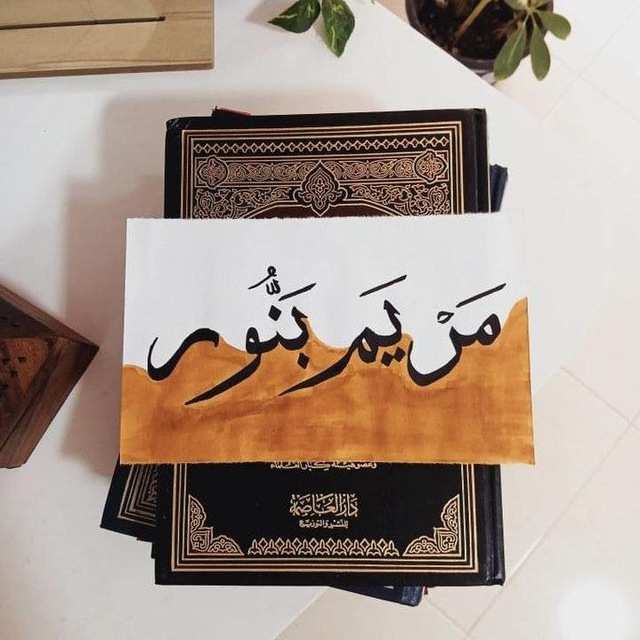 مَرْيَم بَنُّور
دار العاصمة
للنشر والتوزيع